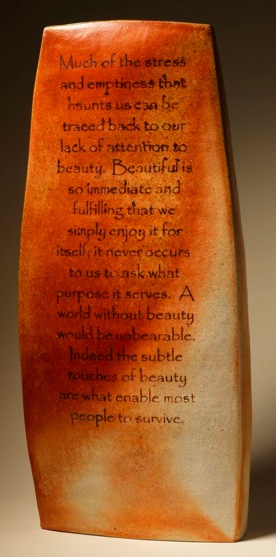 Much of the stress
and emptiness that
haunts us can be
traced back to our
lack of attention to
beauty. Beautiful is
so immediate and
fulfilling that we
simply enjoy it for
itself; it never occurs
to us to ask what
purpose it serves. A
world without beauty
would be unbearable.
Indeed the subtle
touches of beauty
are what enable most
people to survive.